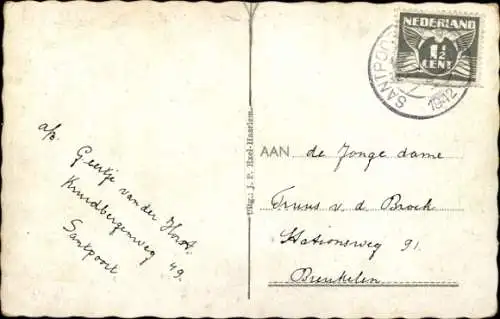 NEDERLAND
1½
CENT
SANTPOORT
1942
a/z
Geertje van der Horst.
Kruidbergerweg 49.
Santpoort.
Uitg.: J. P. Exel-Haarlem.
AAN de Jonge dame
Truus v. d. Broek
Stationsweg 91.
Breukelen.